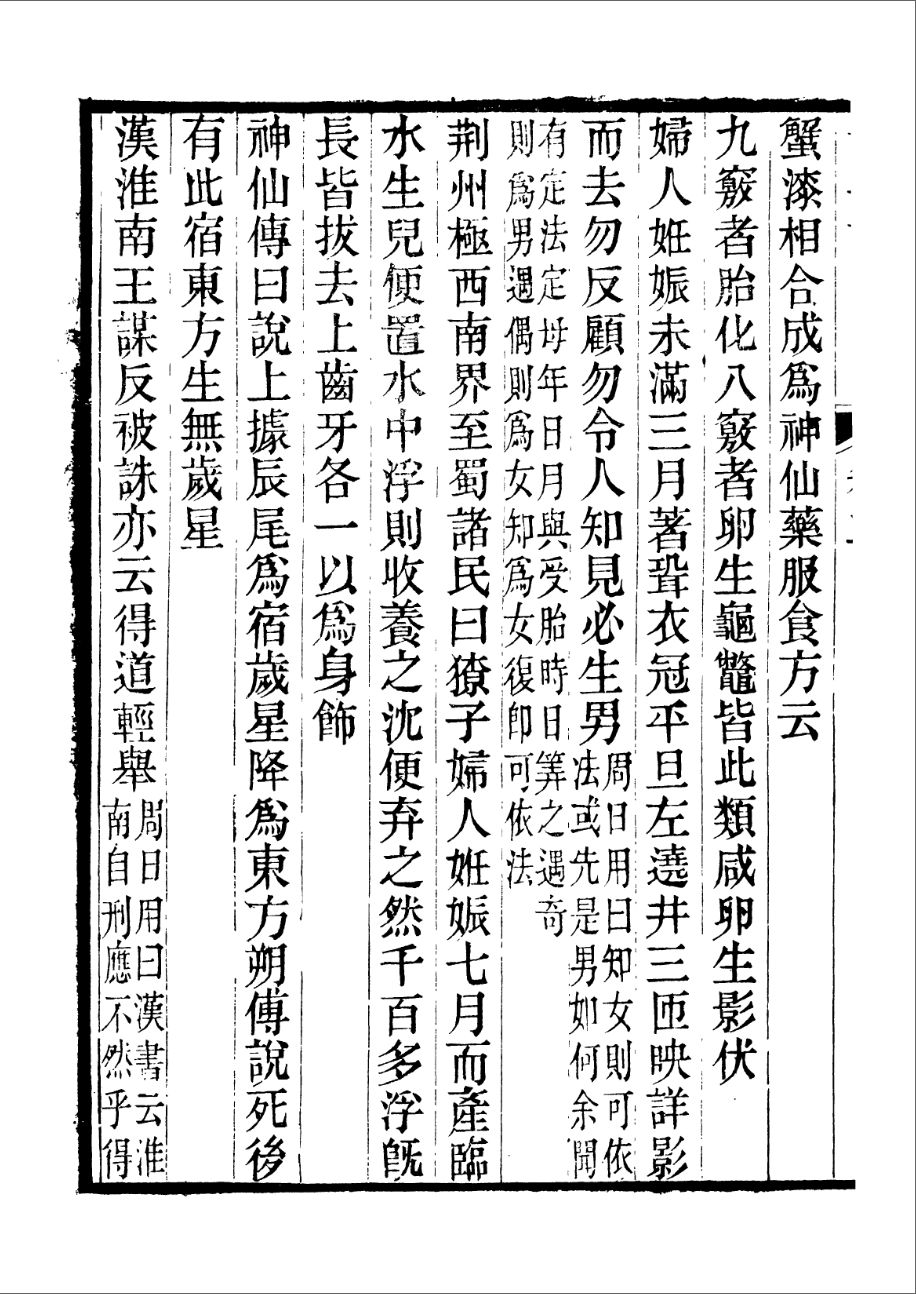 蟹漆相合成爲神仙藥服食方云
九竅者胎化八竅者卵生龜鼈皆此類咸卵生影伏
婦人姙娠未滿三月著壻衣冠平旦左遶井三匝映詳影
而去勿反顧勿令人知見必生男周日用曰知女則可依
法或先是男如何余聞
有定法定母年日月與受胎時日筭之遇奇
則爲男遇偶則爲女知爲女復卽可依法
荆州極西南界至蜀諸民曰獠子婦人姙娠七月而產臨
水生兒便置水中浮則收養之沈便弃之然千百多浮旣
長皆拔去上齒牙各一以爲身飾
神仙傳曰說上據辰尾爲宿歲星降爲東方朔傅說死後
有此宿東方生無歲星
漢淮南王謀反被誅亦云得道輕舉周日用曰漢書云淮
南自刑應不然乎得